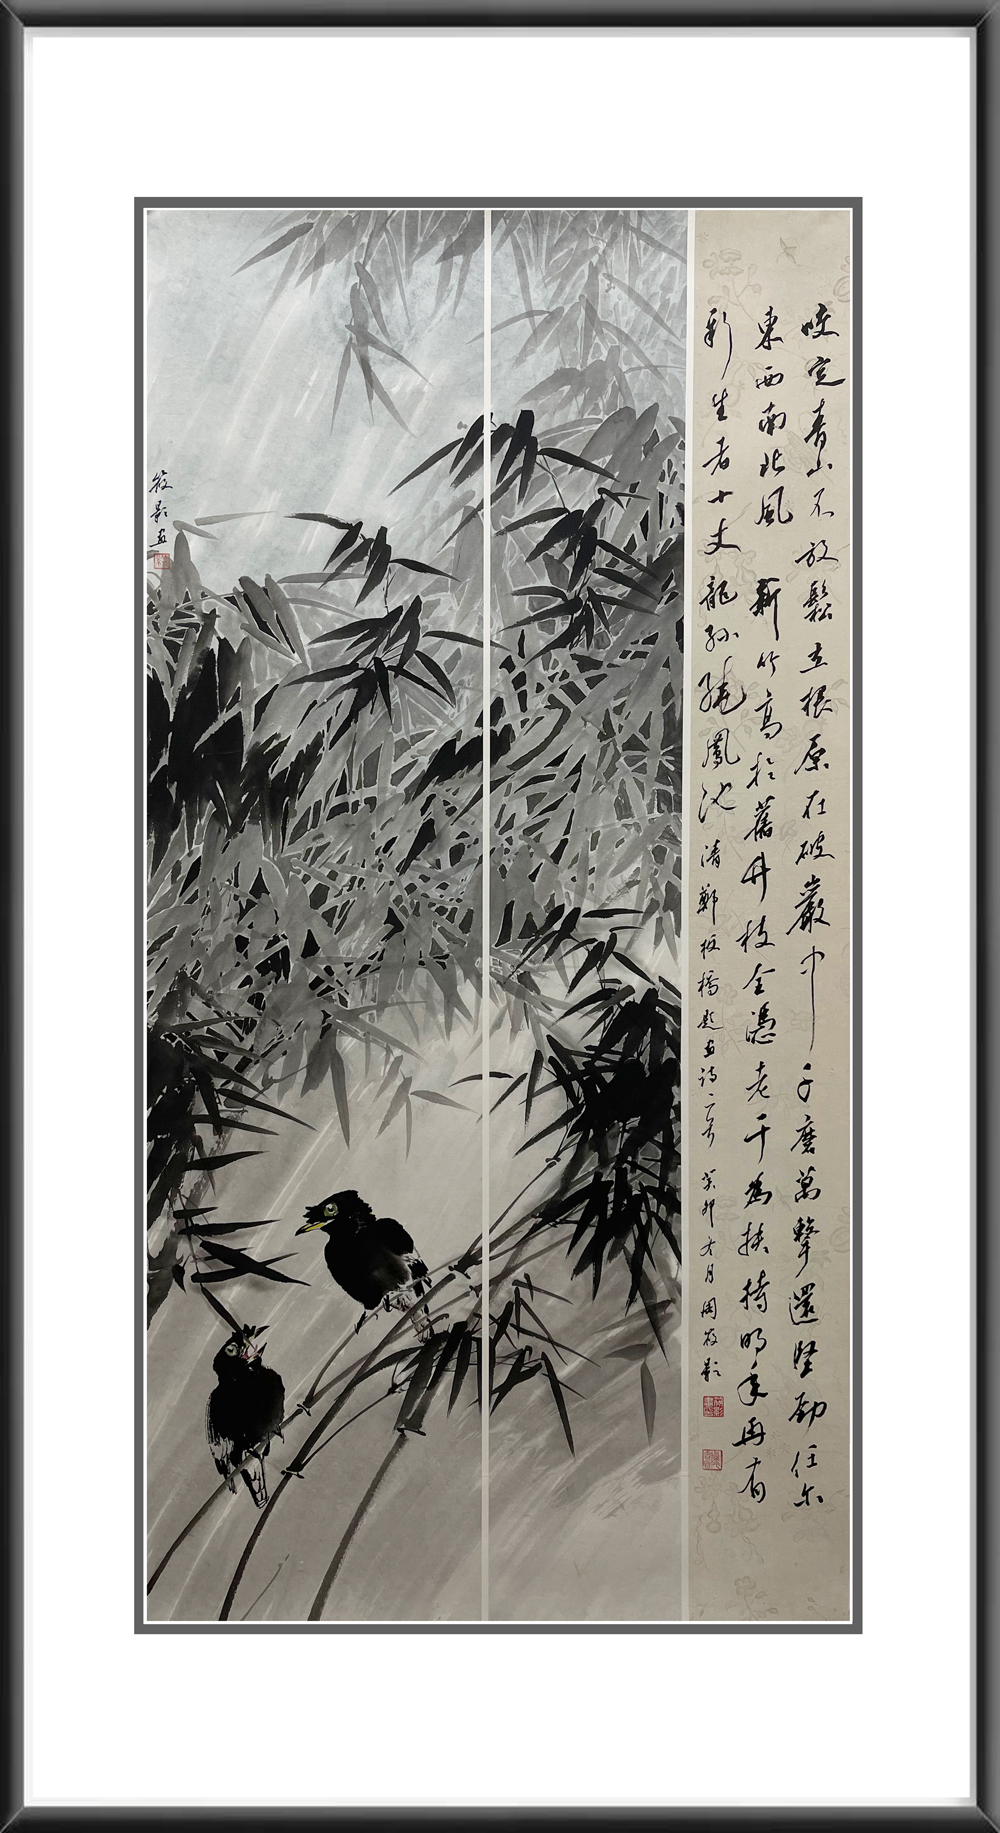 咬定青山不放鬆立根原在破巖中千磨萬擊還堅勁任尔
東西南北風 新竹高於舊竹枝全憑老干為扶持明年再有
新生者十丈龍孫繞鳳池 清鄭板橋題画詩二首 癸卯 月周筱影
筱影画